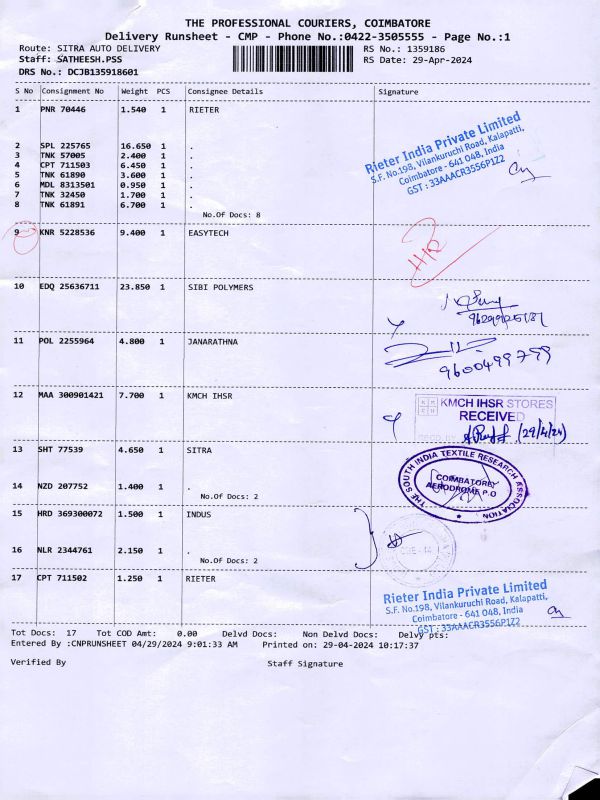 THE PROFESSIONAL COURIERS, COIMBATORE
Delivery Runsheet - CMP - Phone No.:0422-3505555 - Page No.:1
Route: SITRA AUTO DELIVERY
RS No.: 1359186
Staff: SATHEESH.PSS
RS Date: 29-Apr-2024
DRS No.: DCJB135918601
S No Consignment No Weight PCS Consignee Details Signature
1 PNR 70446 1.540 1 RIETER
2 SPL 225765 16.650 1 .
3 TNK 57005 2.400 1 .
4 CPT 711503 6.450 1 .
5 TNK 61890 3.600 1 .
6 MDL 8313501 0.950 1 .
7 TNK 32450 1.700 1 .
8 TNK 61891 6.700 1 .
No.Of Docs: 8
Rieter India Private Limited
S.F. No.198, Vilankuruchi Road, Kalapatti,
Coimbatore - 641 048, India
GST : 33AAACR3556P1Z2
9 KNR 5228536 9.400 1 EASYTECH
10 EDQ 25636711 23.850 1 SIBI POLYMERS
11 POL 2255964 4.800 1 JANARATHNA
9600499759
12 MAA 300901421 7.700 1 KMCH IHSR
KMCH IHSR STORES
RECEIVED
(29/4/24)
13 SHT 77539 4.650 1 SITRA
14 NZD 207752 1.400 1 .
No.Of Docs: 2
THE SOUTH INDIA TEXTILE RESEARCH ASSOCIATION
COIMBATORE
AERODROME P.O
15 HRD 369300072 1.500 1 INDUS
16 NLR 2344761 2.150 1 .
No.Of Docs: 2
17 CPT 711502 1.250 1 RIETER
Rieter India Private Limited
S.F. No.198, Vilankuruchi Road, Kalapatti,
Coimbatore - 641 048, India
GST : 33AAACR3556P1Z2
Tot Docs: 17 Tot COD Amt: 0.00 Delvd Docs: Non Delvd Docs: Delvy pts:
Entered By :CNPRUNSHEET 04/29/2024 9:01:33 AM Printed on: 29-04-2024 10:17:37
Verified By Staff Signature